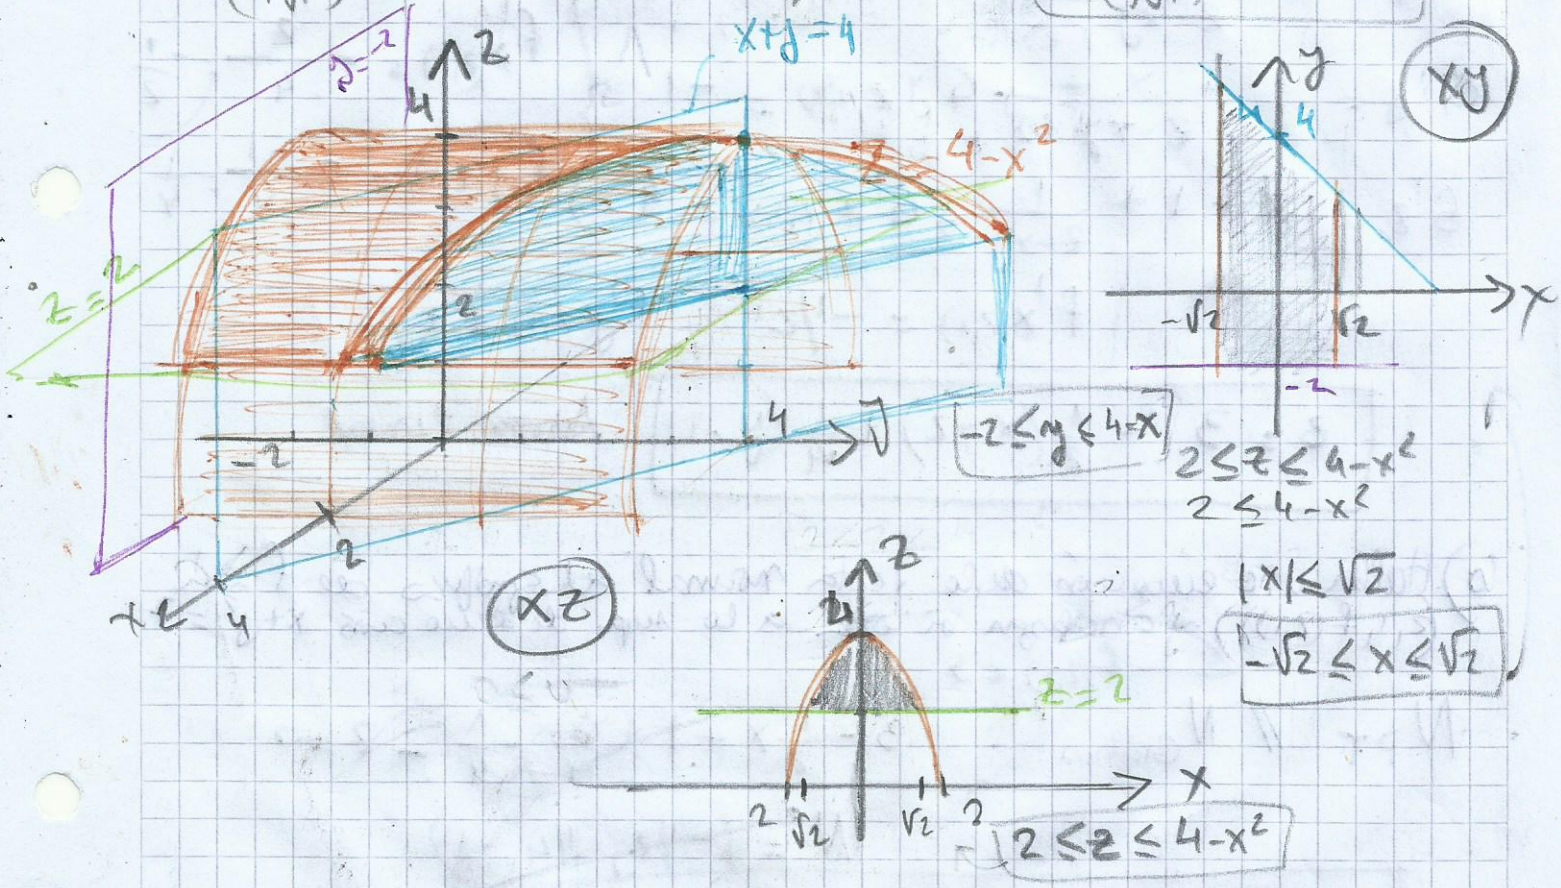 x+y=4
y=-2
z
4
z=4-x²
z=2
2
-2
4
y
2
4
x
xy
y
4
-√2
√2
x
-2
-2≤y≤4-x
2≤z≤4-x²
2≤4-x²
|x|≤√2
-√2≤x≤√2
xz
z
4
z=2
x
2
√2
√2
2
2≤z≤4-x²